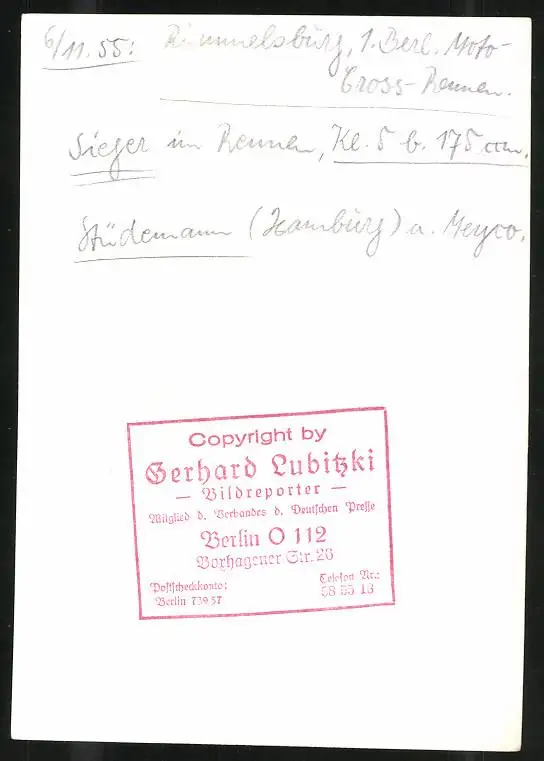 6/11.55: Rummelsburg, 1. Berl. Moto-
Cross-Rennen.
Sieger im Rennen, Kl. 5 b. 175 ccm,
Stüdemann (Hamburg) a. Meyco.
Copyright by
Gerhard Lubitzki
— Bildreporter —
Mitglied d. Verbandes d. Deutschen Presse
Berlin O 112
Boxhagener Str. 26
Postscheckkonto: Telefon Nr.:
Berlin 739 57 58 55 13